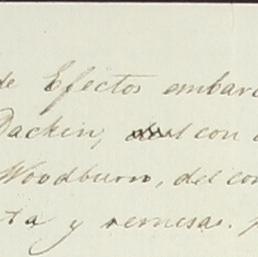 de Efectos embarc
Dackin, del con
Woodburn, del con
ta y remesas.